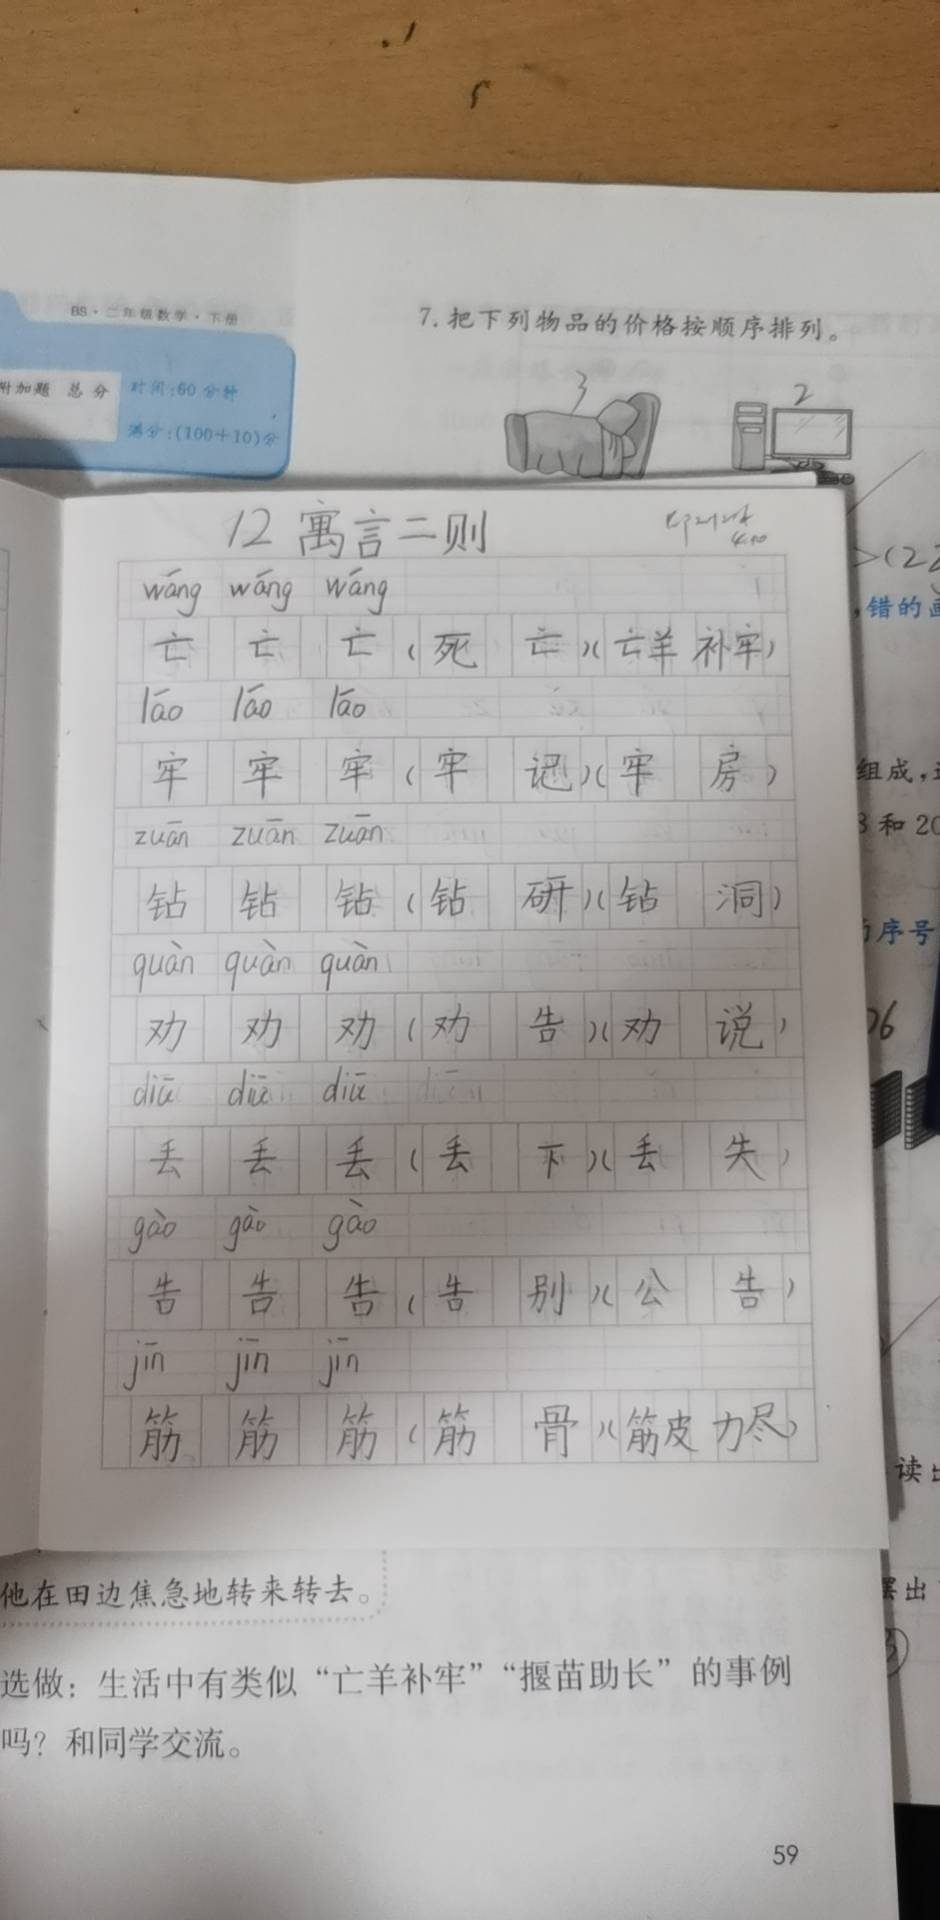 BS·二年级数学·下册
附加题 总分 时间:60分钟
满分:(100+10)分
7.把下列物品的价格按顺序排列。
3 2
12 寓言二则
4.10
wáng wáng wáng
亡 亡 亡 (死 亡)(亡羊 补牢)
láo láo láo
牢 牢 牢 (牢 记)(牢 房)
zuān zuān zuān
钻 钻 钻 (钻 研)(钻 洞)
quàn quàn quàn
劝 劝 劝 (劝 告)(劝 说)
diū diū diū
丢 丢 丢 (丢 下)(丢 失)
gào gào gào
告 告 告 (告 别)(公 告)
jīn jīn jīn
筋 筋 筋 (筋 骨)(筋皮 力尽)
>(22
,错的画
组成,
3和20
序号
06
读出
摆出
③
他在田边焦急地转来转去。
选做:生活中有类似“亡羊补牢”“揠苗助长”的事例
吗?和同学交流。
59